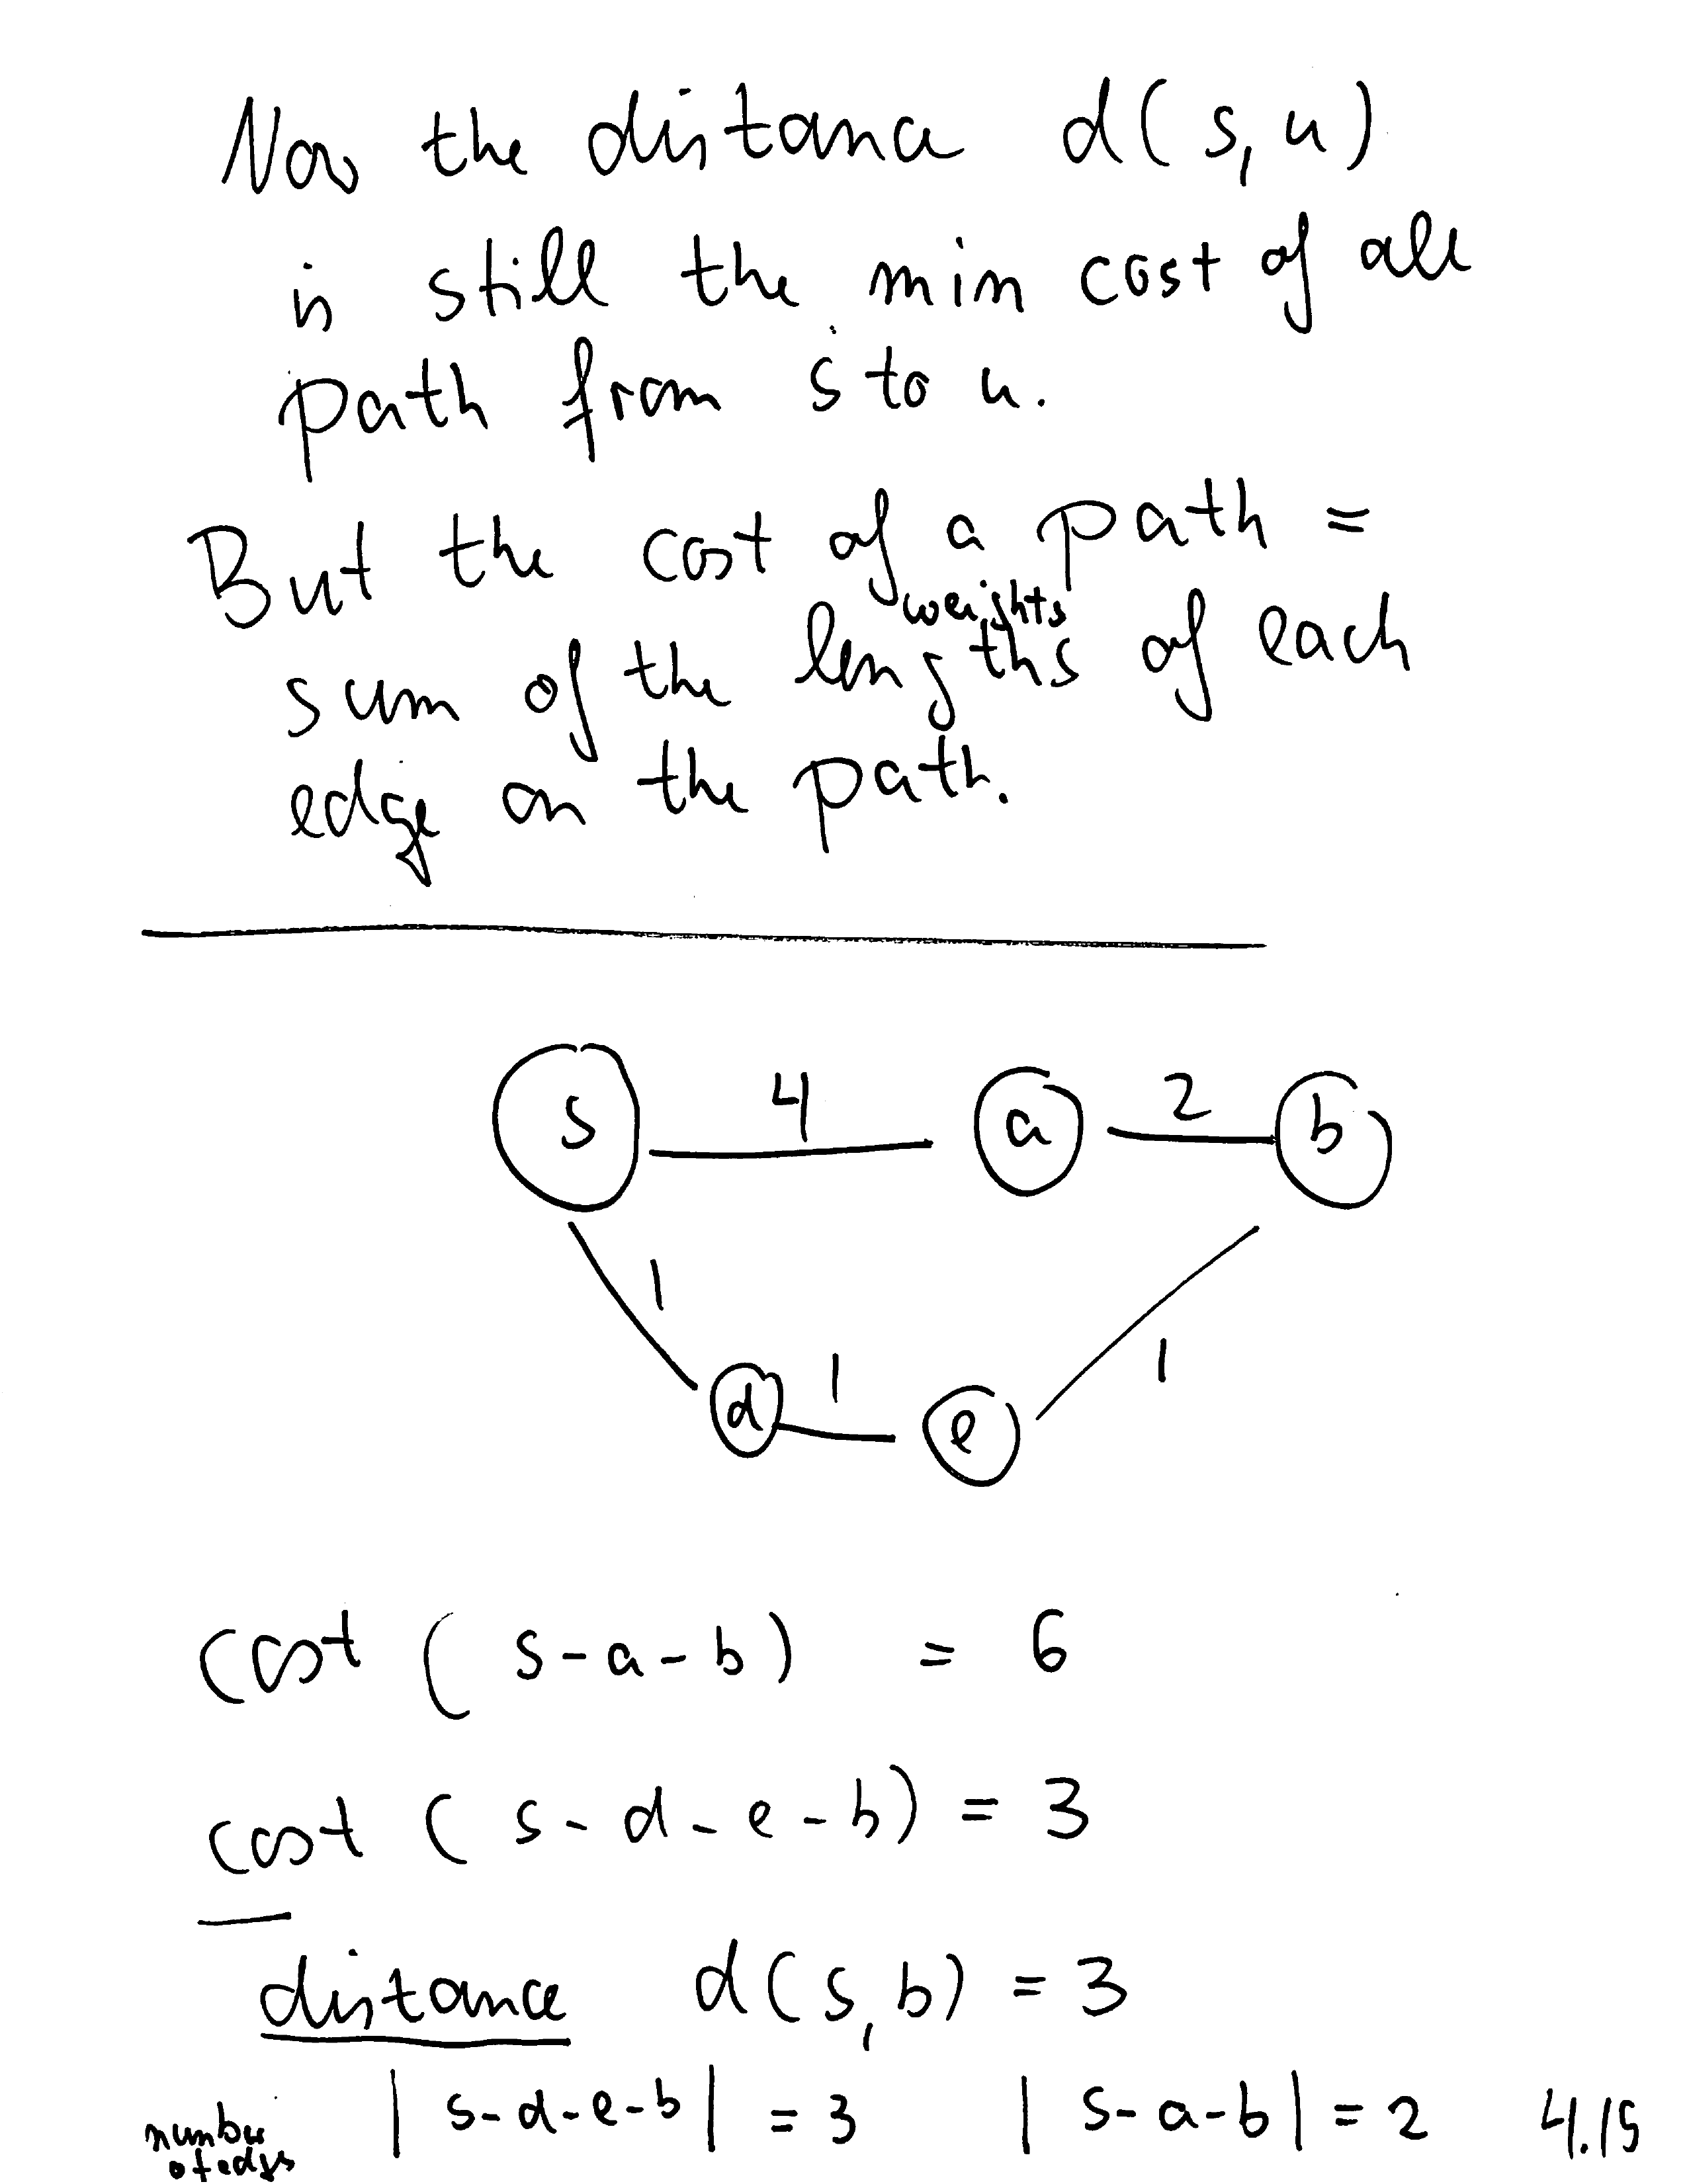 Now the distance d(s,u)
is still the min cost of all
path from s to u.
But the cost of a path =
weights
sum of the lengths of each
edge on the path.
s 4 a 2 b
1
d 1 e 1
cost ( s-a-b) = 6
cost ( s-d-e-b) = 3
distance d(s,b) = 3
number of edges | s-d-e-b | = 3 | s-a-b | = 2 4.15